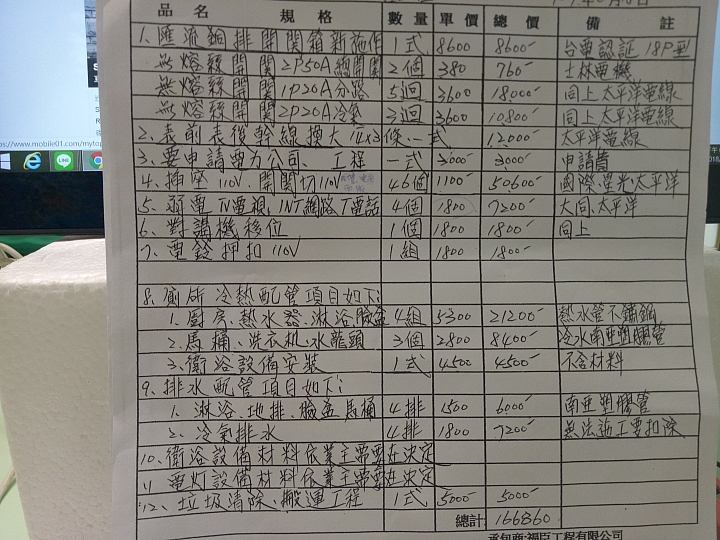 品名 規格 數量 單價 總價 備註
1、匯流銅排開關箱新施作 1式 8600 8600 台電認証 18P型
無熔絲開關 2P50A總開關 2個 380 760 士林電機
無熔絲開關 1P20A分路 5迴 3600 18000 同上太平洋電線
無熔絲開關 2P20A冷氣 3迴 3600 10800 同上太平洋電線
2、表前表後幹線換大 14x3條 一式 12000 太平洋電線
3、要申請電力公司、工程 一式 3000 3000 申請費
4、插座110V、開關切110V 46個 1100 50600 國際、星光太平洋
5、弱電TV電視、INT網路、T電話 4個 1800 7200 大同、太平洋
6、對講機移位 1個 1800 1800 同上
7、電鈴押扣110V 1組 1800 1800
8、廁所冷熱配管項目如下:
1、廚房、熱水器、淋浴、臉盆 4組 5300 21200 熱水管不鏽鋼
2、馬桶、洗衣机、水龍頭 3個 2800 8400 冷水南亞塑膠管
3、衛浴設備安裝 1式 4500 4500 不含材料
9、排水配管項目如下:
1、淋浴、地排、臉盆、馬桶 4排 1500 6000 南亞塑膠管
2、冷氣排水 4排 1800 7200 無法施工要扣除
10、衛浴設備材料依業主需要在決定
11、電灯設備材料依業主需要在決定
12、垃圾清除、搬運工程 1式 5000 5000
總計: 166860
承包商:福臣工程有限公司
https://www.mobile01.com/mytop
LINE